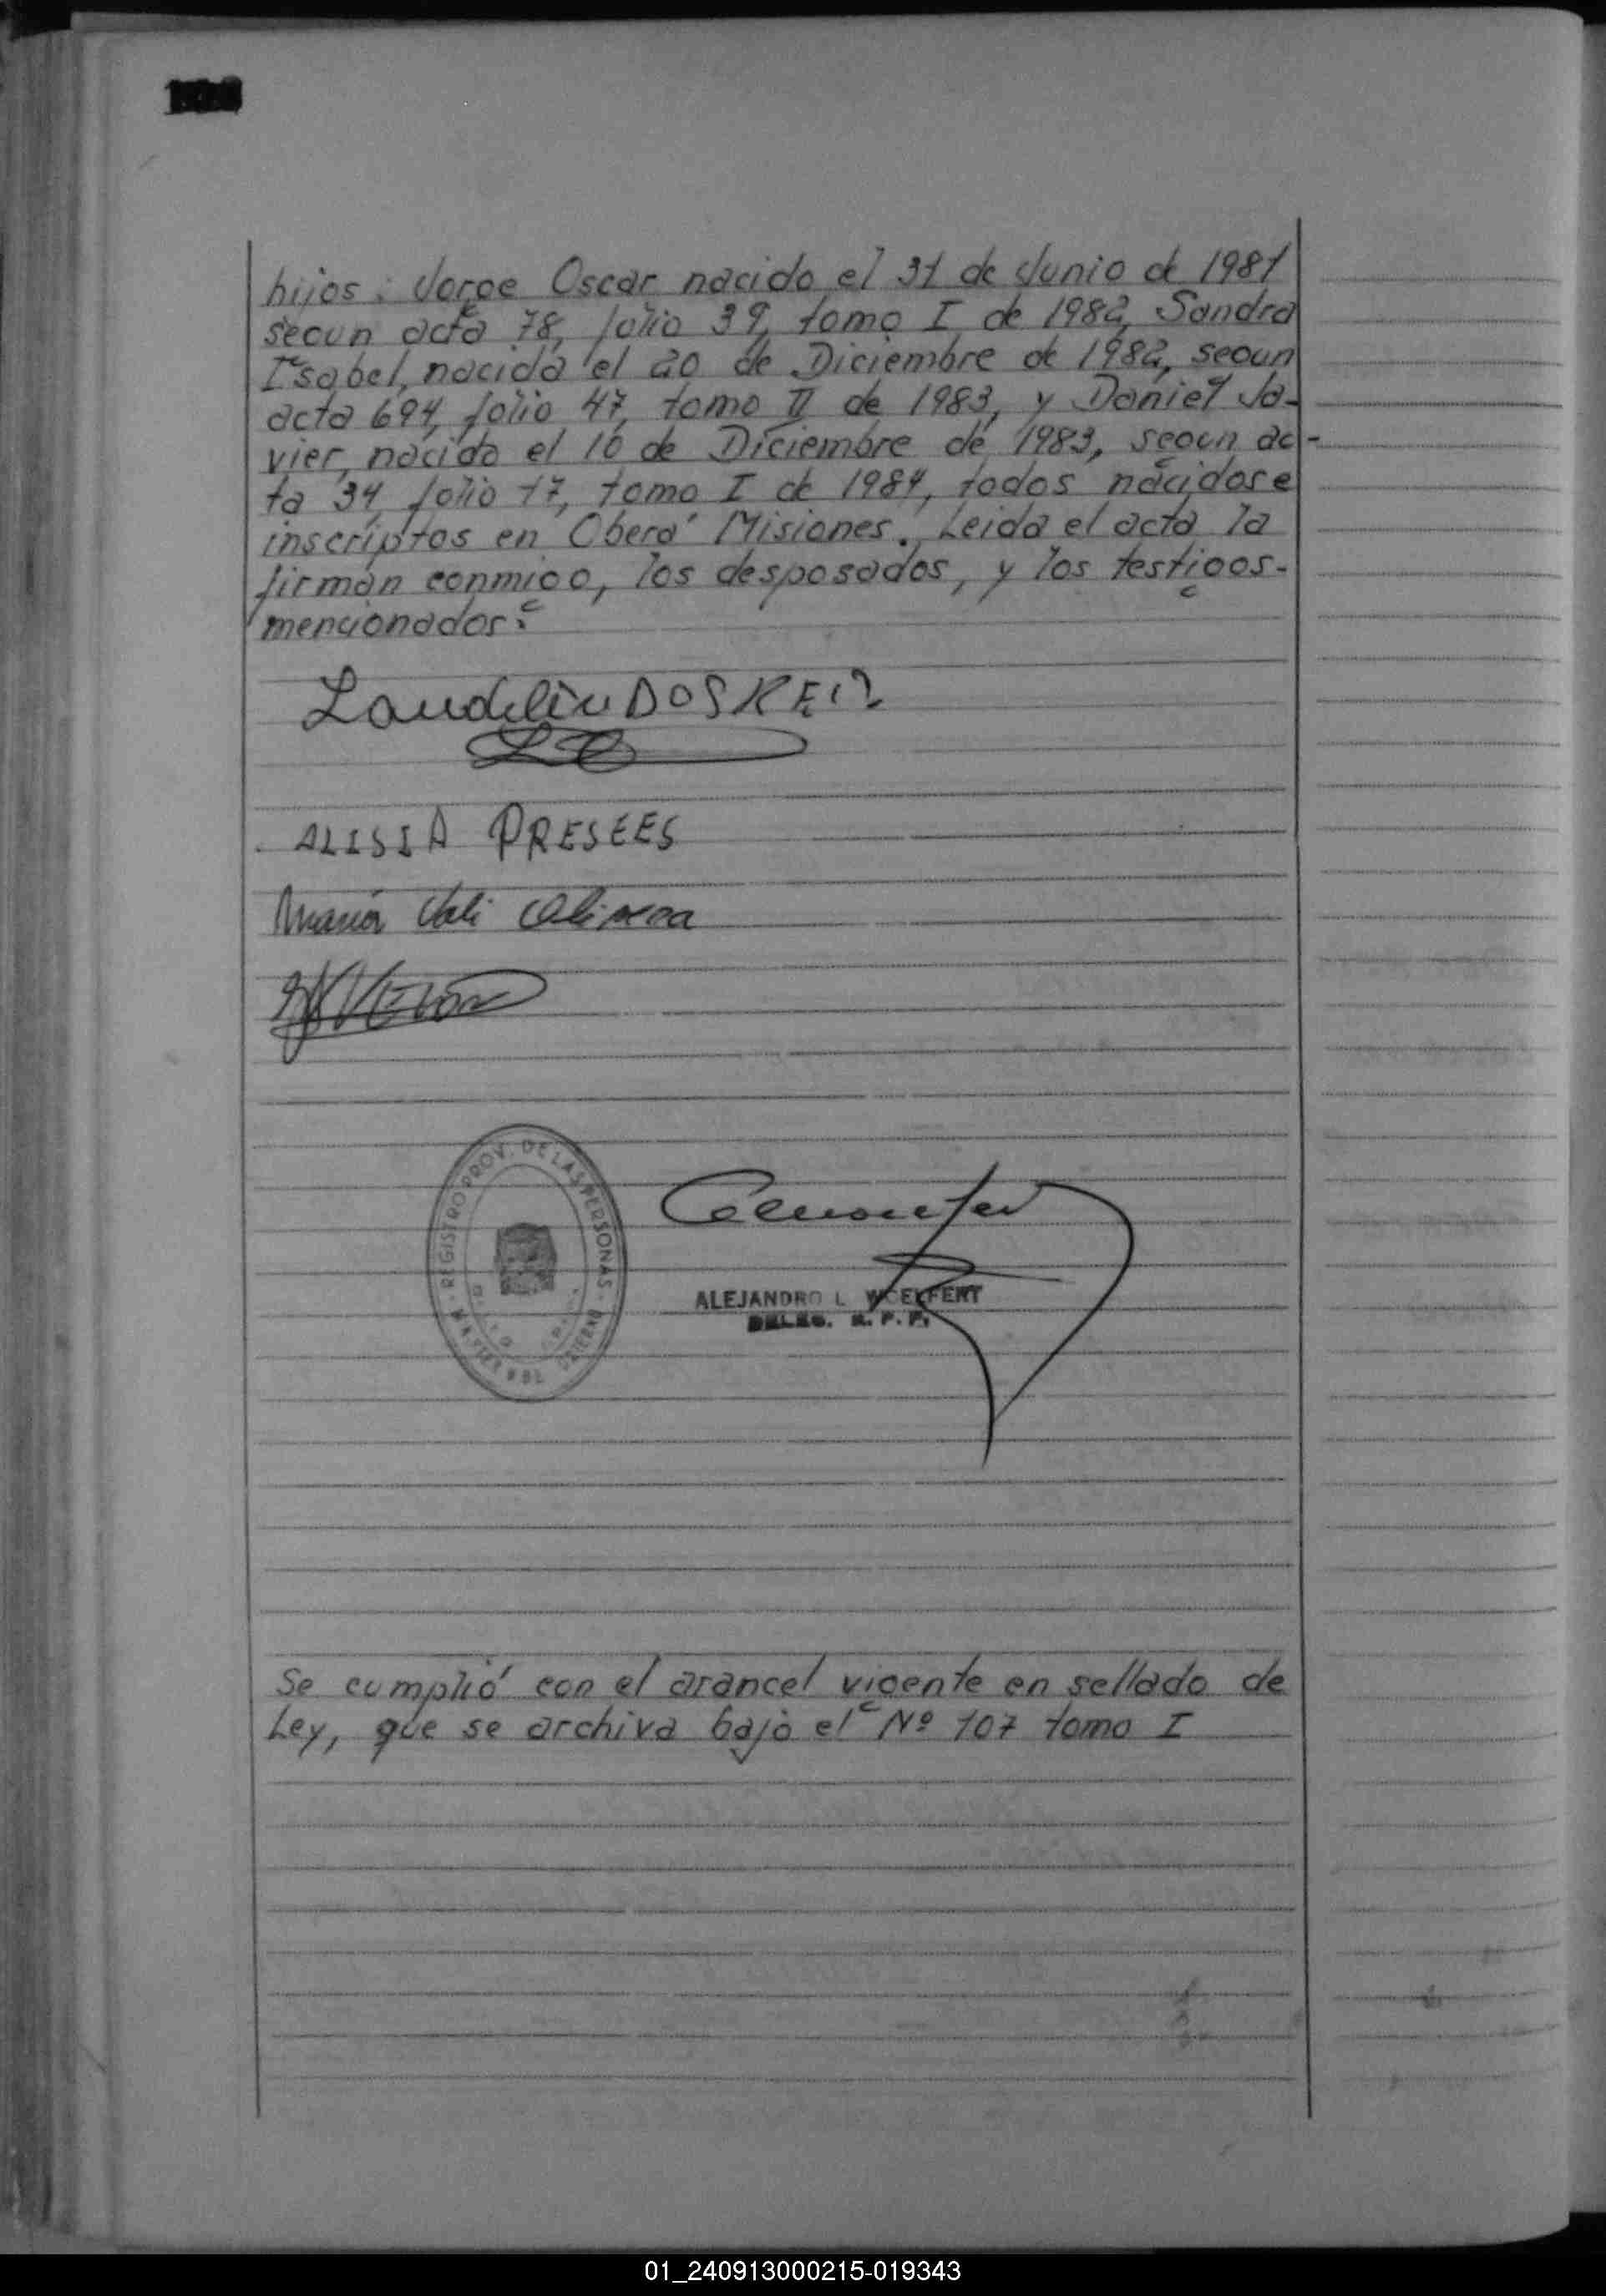 hijos: Jorge Oscar nacido el 31 de Junio de 1981
segun acta 78, folio 39, tomo I de 1982, Sandra
Isabel, nacida el 20 de Diciembre de 1982, segun
acta 694, folio 47, tomo II de 1983, y Daniel Ja-
vier, nacido el 10 de Diciembre de 1983, segun ac-
ta 34, folio 17, tomo I de 1984, todos nacidos e
inscriptos en Oberá Misiones. Leida el acta la
firman conmigo, los desposados, y los testigos-
mencionados:
DOS REIZ
ALISIA PRESEES
Maria
REGISTRO PROV. DE LAS PERSONAS
ALEJANDRO L. WOELFERT
DELEG. R. P. P.
Se cumplió con el arancel vigente en sellado de
Ley, que se archiva bajo el Nº 107 tomo I
01_240913000215-019343